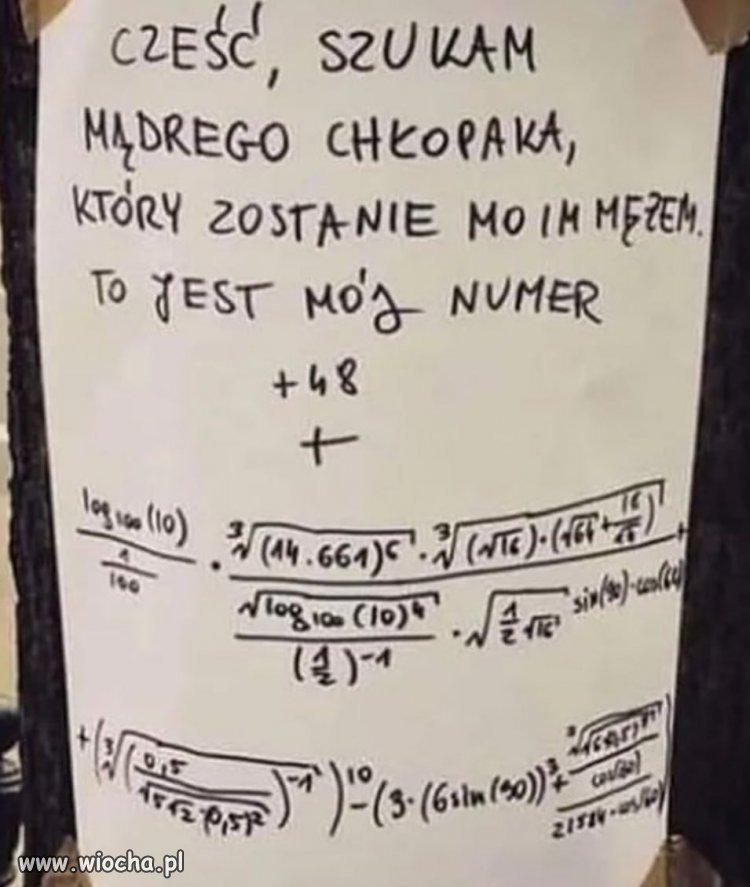 CZEŚĆ, SZUKAM
MĄDREGO CHŁOPAKA,
KTÓRY ZOSTANIE MOIM MĘŻEM.
TO JEST MÓJ NUMER
+48
+
log₁₀₀(10) / (1/100) · ∛(14.661)⁶ · ∛(√16)·(√64+16/
√log₁₀₀(10)⁴ / (1/2)⁻¹ · √1/2 √16 sin(90)·cos(60)
+(∛(0,5 / √5√2·(0,5)²)⁻¹)¹⁰-(3·(6sin(90))³+
www.wiocha.pl